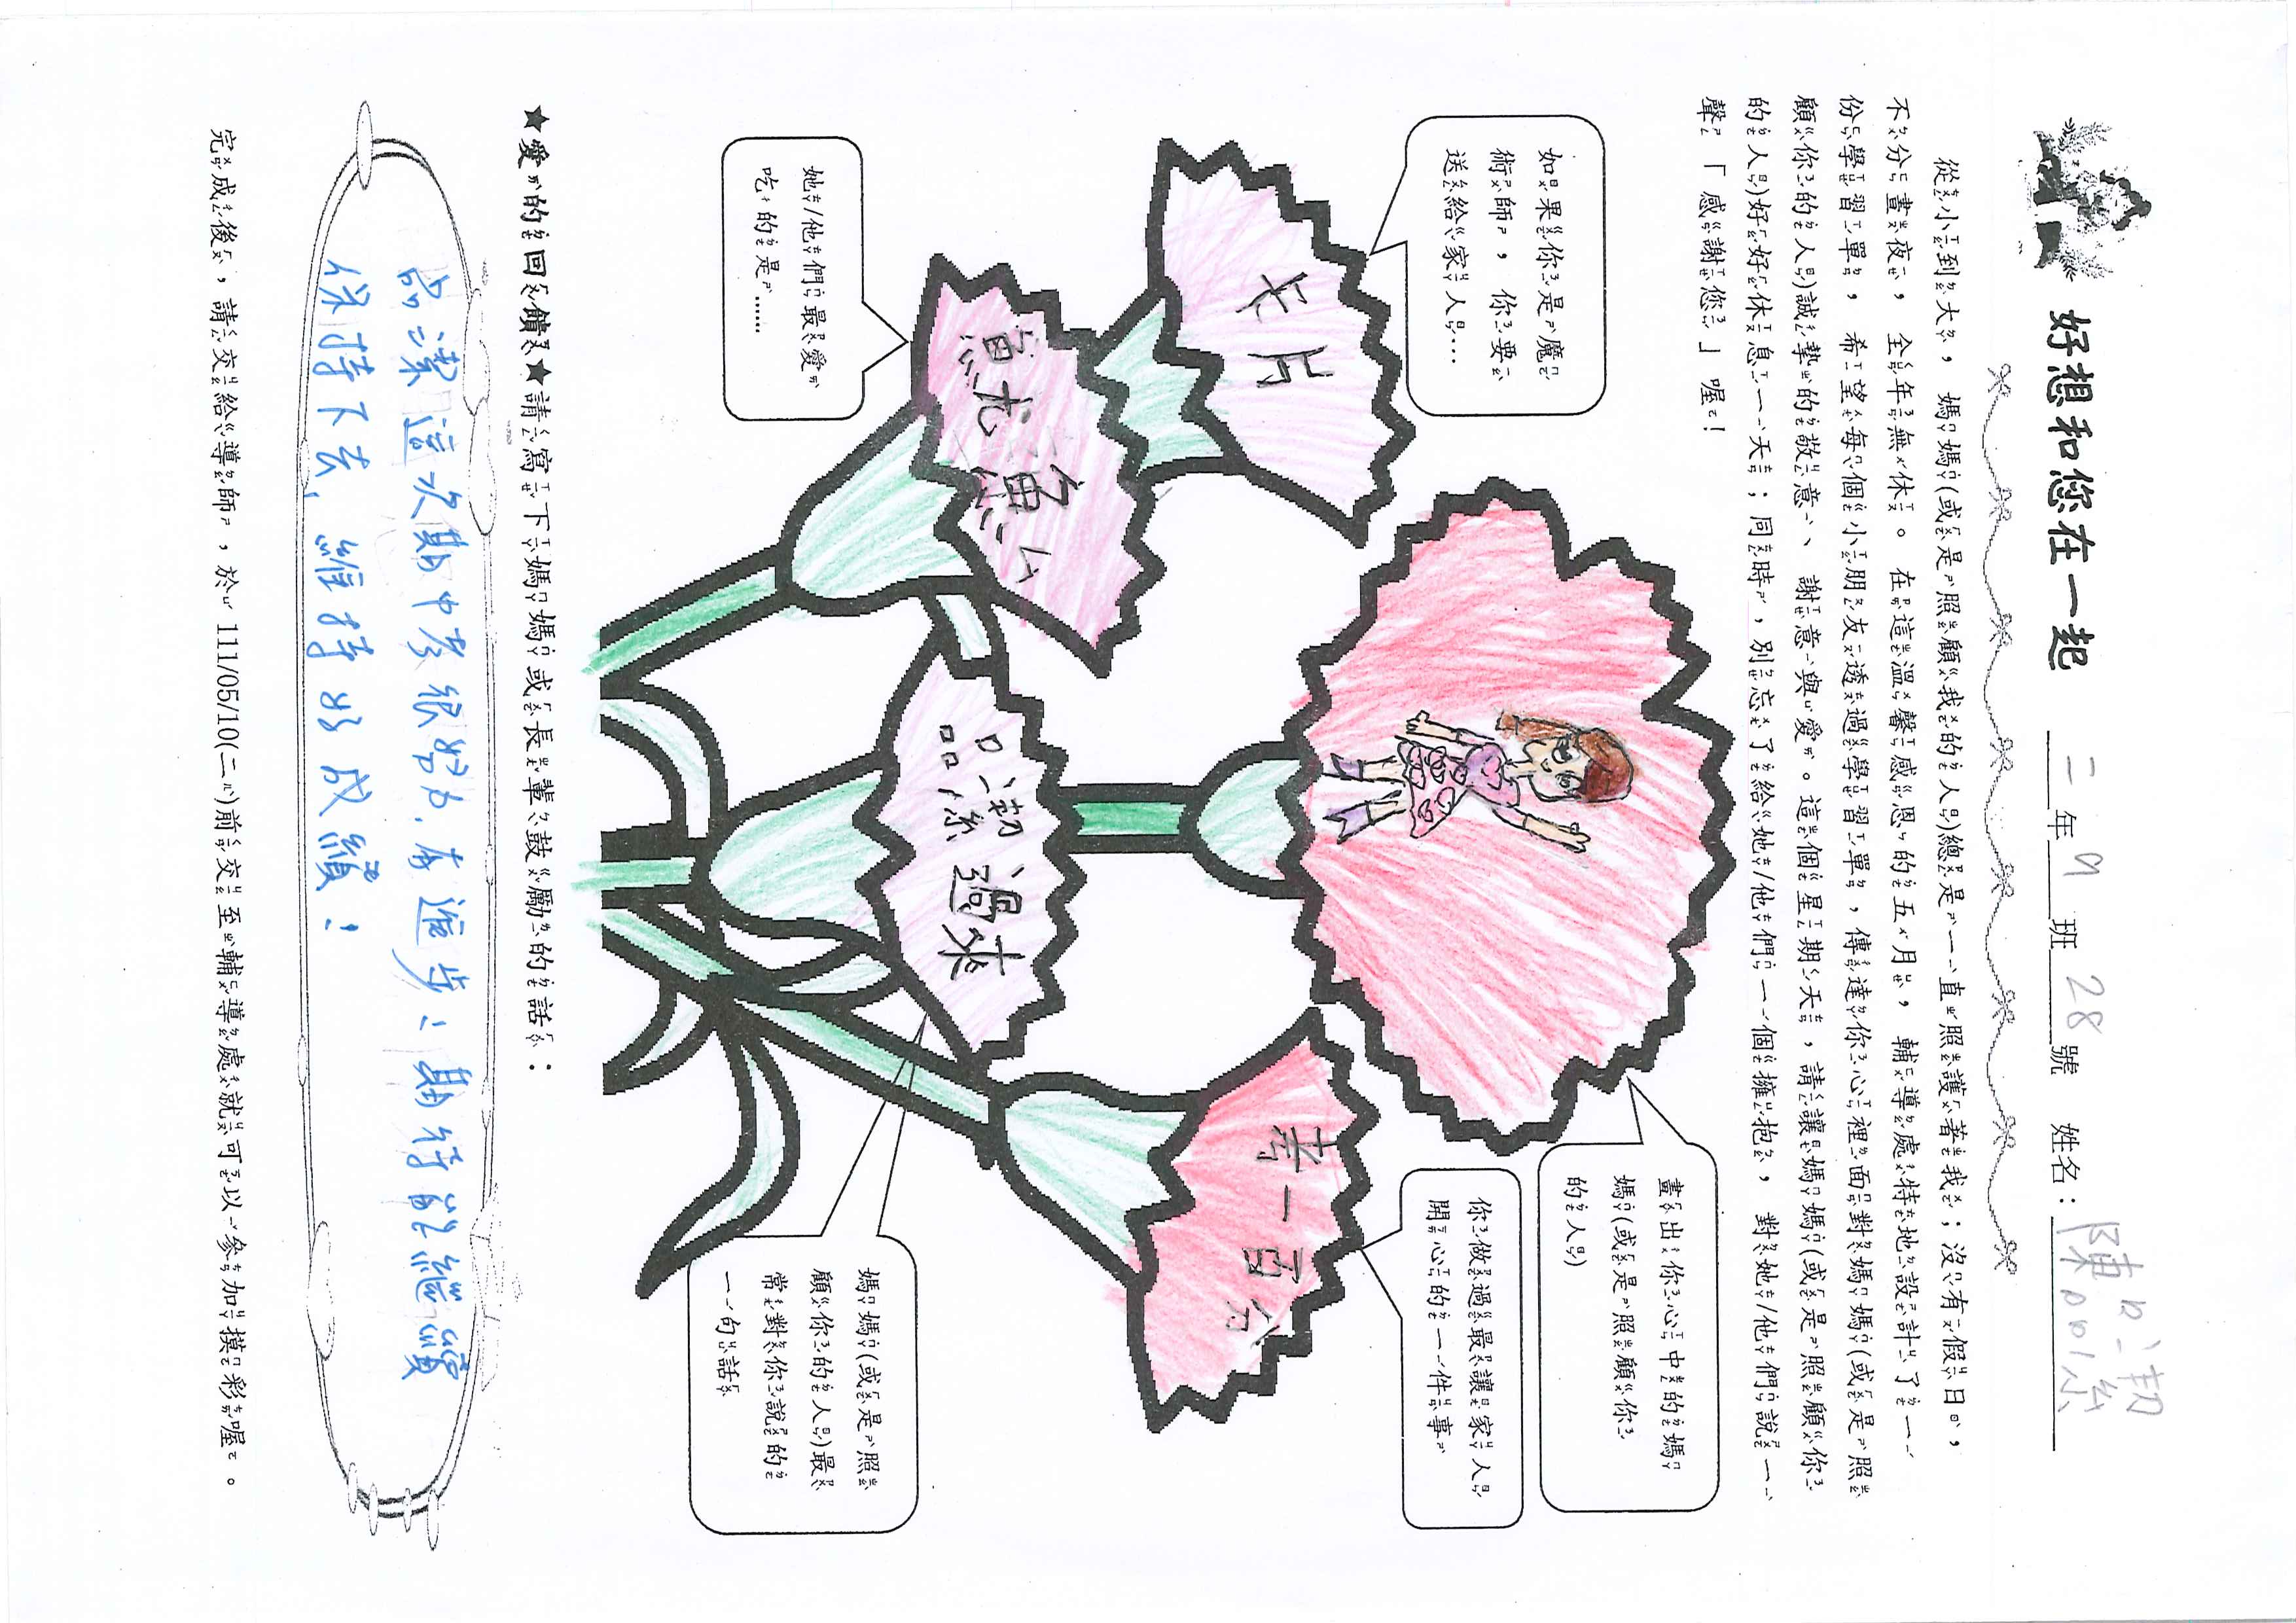 好想和您在一起 二年九班28號 姓名：陳品潔
從小到大，媽媽(或是照顧我的人)總是一直照護著我；沒有假日，
不分晝夜，全年無休。在這溫馨感恩的五月，輔導處特地設計了一
份學習單，希望每個小朋友透過學習單，傳達你心裡面對媽媽(或是照
顧你的人)誠摯的敬意、謝意與愛。這個星期天，請讓媽媽(或是照顧你
的人)好好休息一天；同時，別忘了給她/他們一個擁抱，對她/他們說一
聲「感謝您」喔！
如果你是魔
術師，你要
送給家人…
卡片
畫出你心中的媽
媽(或是照顧你
的人)
你做過最讓家人
開心的一件事
考一百分
她/他們最愛
吃的是……
魷魚
品潔過來
媽媽(或是照
顧你的人)最
常對你說的
一句話
★愛的回饋★請寫下媽媽或長輩鼓勵的話：
品潔這次期中考很努力，有進步；期待能繼續
保持下去，維持好成績！
完成後，請交給導師，於111/05/10(二)前交至輔導處就可以參加摸彩喔。